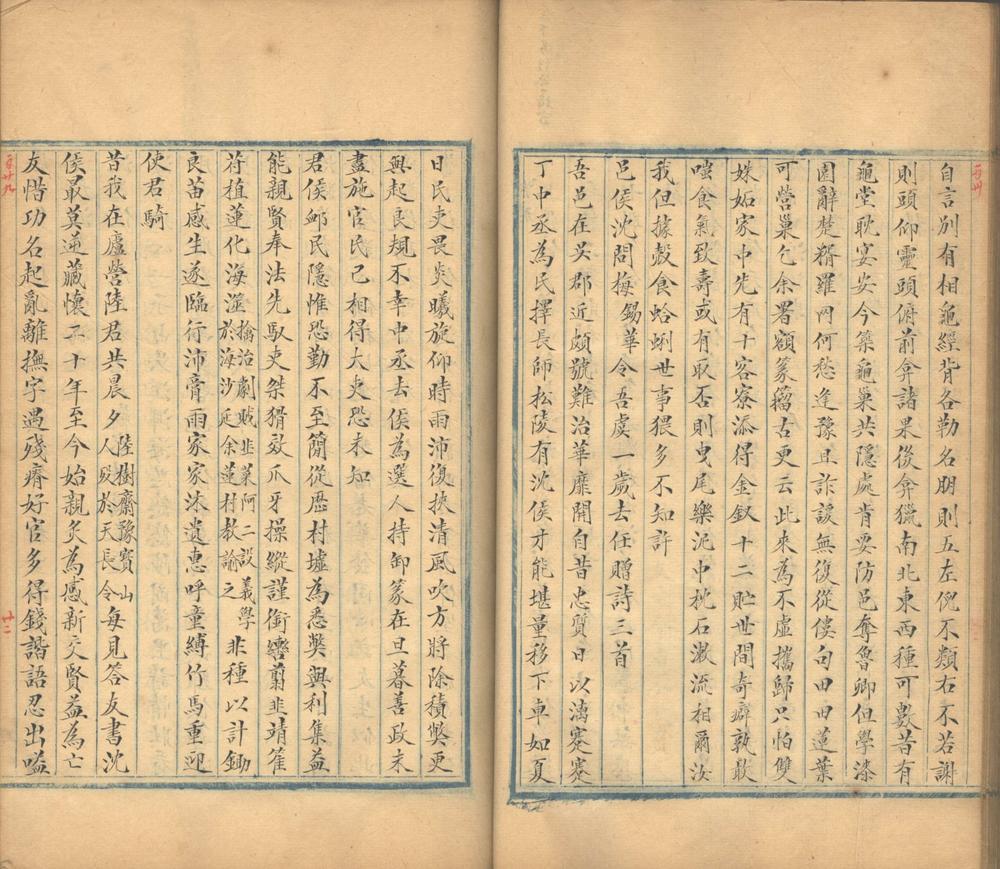 自言別有相龜經背各勒名朋則五左倪不類右不若謝
則頭仰靈頭俯前弇諸果後弇獵南北東西種可數昔有
龜堂耽宴安今築龜巢共隱處肯要防邑奪魯卿但學漆
園辭楚精羅門何愁逢豫且詐諼無復從僂句田田蓮葉
可營巢乞余署額篆籀古更云此來為不虛攜歸只怕雙
姝妬家中先有十容寮添得金釵十二貯世間奇癖孰敢
嗤食氣致壽或有取否則曳尾樂泥中枕石漱流相爾汝
我但據殼食蛤蜊世事猥多不知許
邑侯沈問梅錫華令吾虞一歲去任贈詩三首
吾邑在吳郡近頗號難治華靡開自昔忠質日以漓蹇蹇
丁中丞為民擇長師松陵有沈侯才能堪量移下車如夏
日民吏畏炎曦旋仰時雨沛復挾清風吹方將除積獘更
興起良規不幸中丞去侯為選人持卸篆在旦暮善政未
盡施官民已相得大吏恐未知
君侯鄉民隱惟恐勤不至簡從歷村墟為悉獘與利集益
能親賢奉法先馭吏桀猾效爪牙操縱謹銜轡翦韭靖萑
苻植蓮化海澨擒治劇賊韭菜阿二設義學
於海沙延余蓮村教諭之非種以計鋤
良苗感生遂臨行沛膏雨家家沐遺惠呼童縛竹馬重迎
使君騎
昔我在廬營陸君共晨夕陸樹齋豫寶山
人歿於天長令每見答友書沈
侯最莫逆藏懷二十年至今始親炙為感新交賢益為亡
友惜功名起亂離撫字遇殘瘠好官多得錢諧語忍出嗌
百卅
百廿九
廿二